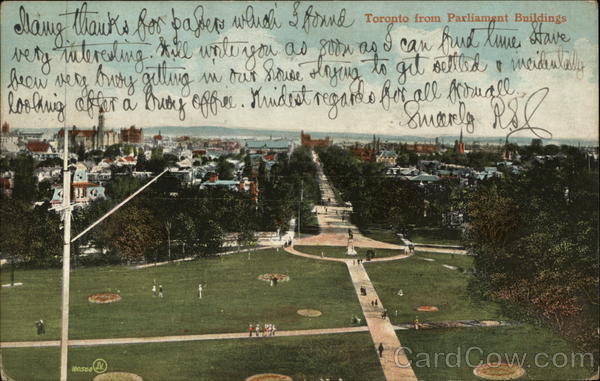 Toronto from Parliament Buildings
Many thanks for papers which I found
very interesting. Will write you as soon as I can find time. Have
been very busy getting in our house trying to get settled & incidentally
looking after a busy office. Kindest regards for all from all.
Sincerely
100500
CardCow.com